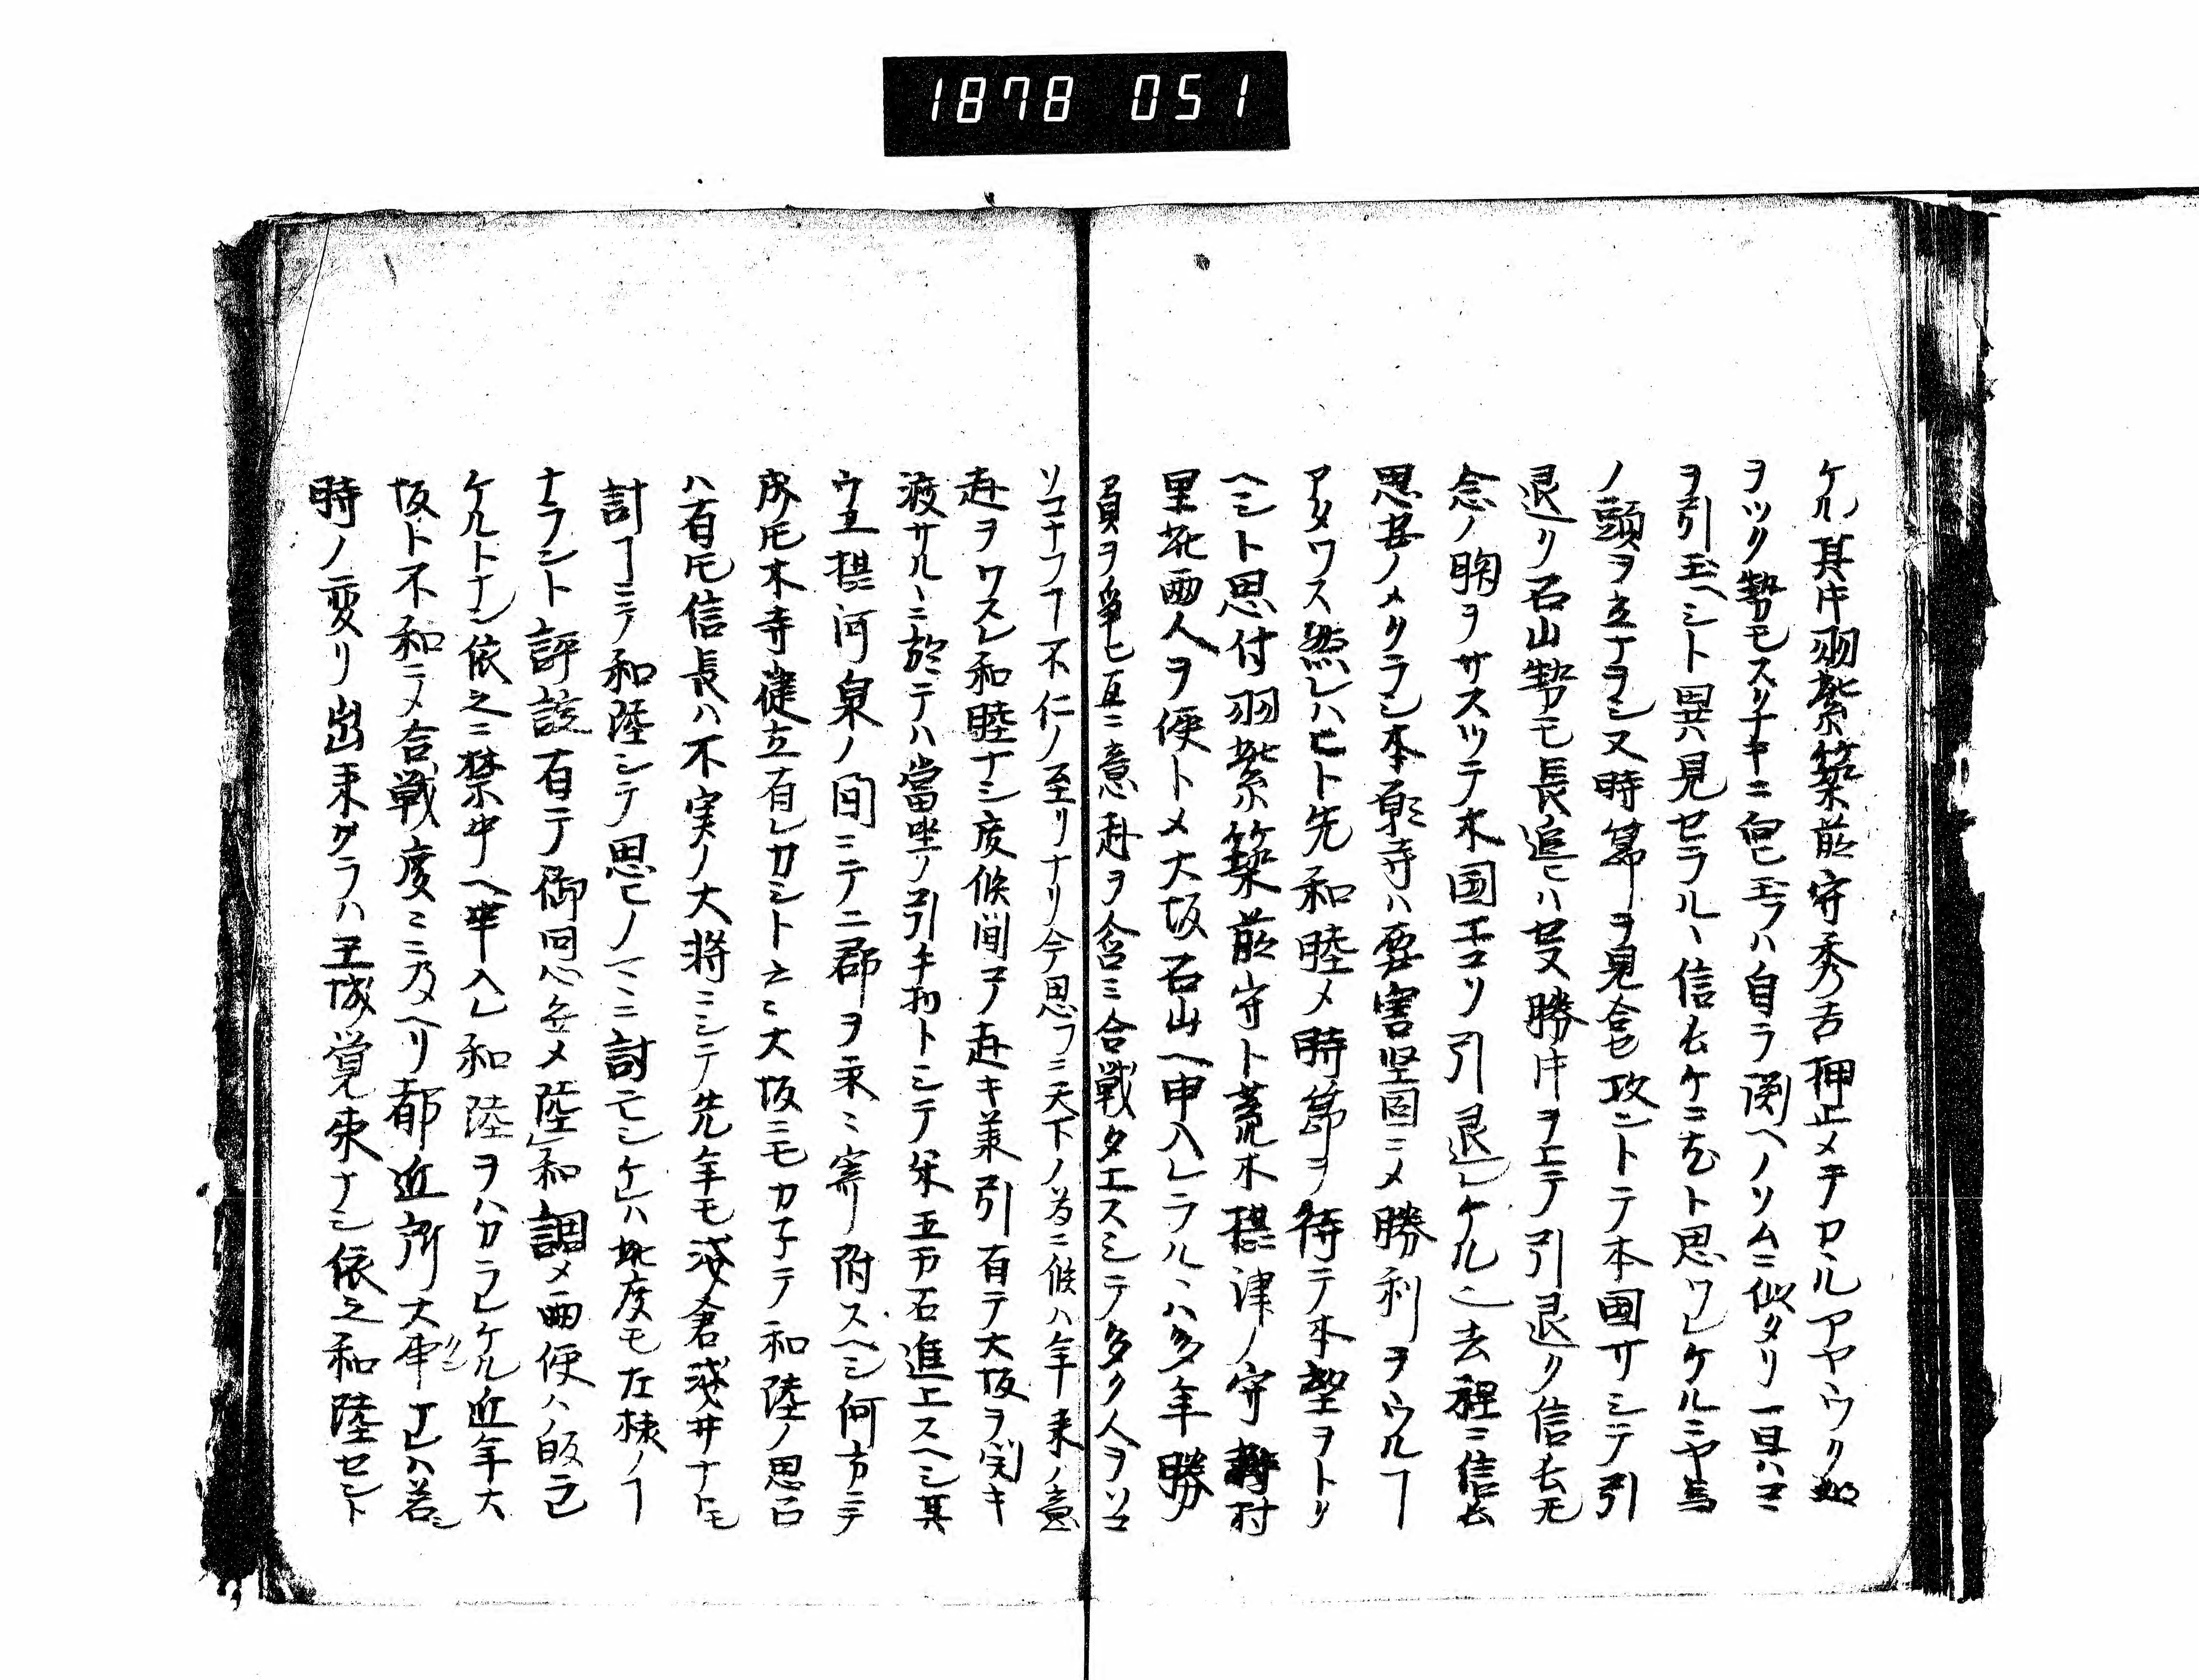 1878 051
ケル其中羽柴築前守秀吉押止メテカヽルアヤウク
ヲツク勢モスリチキニ向ヒ玉フハ自ラ渕ヘノソムニ似タリ一旦ハココ
ヲ引玉ヘシト異見セラルヽ信長ケニモト思ワレケルニヤ馬
ノ頭ヲ立ナヲシ又時節ヲ見合セ攻ントテ本國サシテ引
退リ石山勢モ長追ヒハせス勝 ヲエテ引退ク信長モ
念ノ胸ヲサスツテ本国エコソ引退レケル 去程ニ信長
思案ノメクラシ本願寺ハ要害堅固ニメ勝利ヲウルヿ
アタワス然レハヒト先和睦メ時節ヲ待テ本望ヲトリ
ヘシト思付羽柴築前守ト荒木摂津ノ守村
里 両人ヲ使トメ大坂石山ヘ申入レラルヽハ多年勝
負ヲ争ヒ互ニ意赴ヲ含ミ合戦タエスシテ多ク人ヲソコ
ソコナフヿ不仁ノ至リナリ今思フニ天下ノ為ニ候ハ年来ノ意
赴ヲワスレ和睦ナシ度候間コノ赴キ兼引有テ大坂ヲ開キ
渡サルヽニ於テハ當坐ノ引キ物トシテ米五万石進エスヘシ其
ウエ摂河泉ノ間ニテ二郡ヲ末ミ寄附スヘシ何方ニテ
成氏本寺建立有レカシト云ミ大坂ニモカ子テ和陸ノ思召
ハ有氏信長ハ不実ノ大将ニシテ先年モ浅倉浅井ナトモ
討ヿニテ和陸シテ思ヒノ ヽニ討モシケレハ此度モ左様ノヿ
ナラント評議有テ御同心無メ陸」和調メ両使ハ皈ラ
ケルトナン依之ニ禁中ヘ申入レ和陸ヲハカラレケル近年大
坂ト不和ニメ合戦度ミニ乃ヘリ都近所大事ナレハ若シ
時ノ変リ出来タラハ王城覚束ナシ依之和陸セント